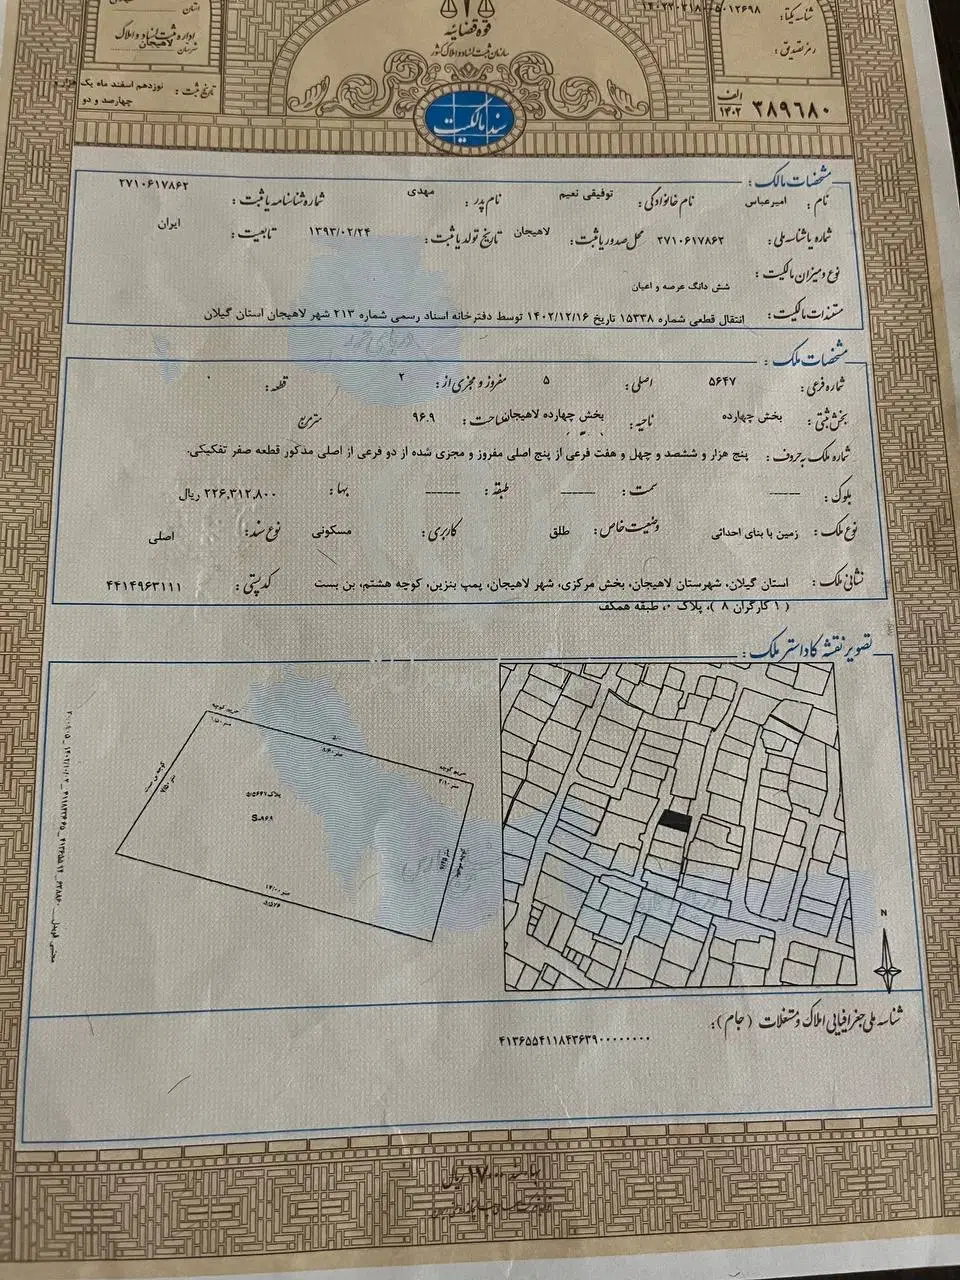 استان :
قوه قضائیه
سازمان ثبت اسناد و املاک کشور
اداره ثبت اسناد و املاک
شهرستان لاهیجان
تاریخ ثبت : نوزدهم اسفند ماه یک هزار و
چهارصد و دو
شناسه یکتا:
رمز تصدیق :
الف
۱۴۰۲
۳۸۹۶۸۰
سند مالکیت
مشخصات مالک :
نام : امیرعباس نام خانوادگی : توفیقی نعیم نام پدر : مهدی شماره شناسنامه یا ثبت : ۲۷۱۰۶۱۷۸۶۲
شماره یا شناسه ملی : ۲۷۱۰۶۱۷۸۶۲ محل صدور یا ثبت : لاهیجان تاریخ تولد یا ثبت : ۱۳۹۳/۰۲/۲۴ تابعیت : ایران
نوع و میزان مالکیت : شش دانگ عرصه و اعیان
مستندات مالکیت : انتقال قطعی شماره ۱۵۳۳۸ تاریخ ۱۴۰۲/۱۲/۱۶ توسط دفترخانه اسناد رسمی شماره ۲۱۳ شهر لاهیجان استان گیلان
مشخصات ملک :
شماره فرعی : ۵۶۴۷ اصلی : ۵ مفروز و مجزی از : ۲ قطعه : ۰
بخش ثبتی : بخش چهارده ناحیه : بخش چهارده لاهیجان مساحت : ۹۶.۹ مترمربع
شماره ملک به حروف : پنج هزار و ششصد و چهل و هفت فرعی از پنج اصلی مفروز و مجزی شده از دو فرعی از اصلی مذکور قطعه صفر تفکیکی.
بلوک : ------ سمت : ------ طبقه : ------ بها : ۲۲۶,۳۱۲,۸۰۰ ریال
نوع ملک : زمین با بنای احداثی وضعیت خاص : طلق کاربری : مسکونی نوع سند : اصلی
نشانی ملک : استان گیلان، شهرستان لاهیجان، بخش مرکزی، شهر لاهیجان، پمپ بنزین، کوچه هشتم، بن بست کدپستی : ۴۴۱۴۹۶۳۱۱۱
( ۱ کارگران ۸ )، پلاک ۰، طبقه همکف
تصویر نقشه کاداستر ملک :
پلاک ۵/۵۶۴۷
N
شناسه ملی جغرافیایی املاک و مستغلات (جام):
۴۱۳۶۵۵۴۱۱۸۴۳۶۳۹۰۰۰۰۰۰۰۰